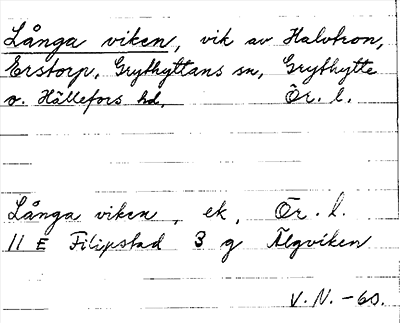 Långa viken, vik av Halvtron,
Erstorp, Grythyttans sn, Grythytte
o. Hällefors hd, Ör. l.
Långa viken, ek, Ör. l.
11 E Filipstad 3 g Älgviken
V. N. -60.